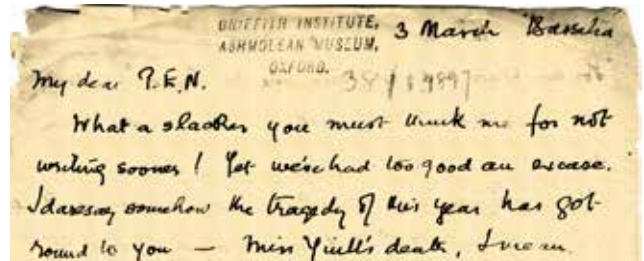 GRIFFITH INSTITUTE,
ASHMOLEAN MUSEUM,
OXFORD.
3 March
My dear P.E.N.
What a slacker you must think me for not
writing sooner! Yet we've had too good an excuse.
I daresay somehow the tragedy of this year has got
round to you — Miss Yuill's death, I mean.